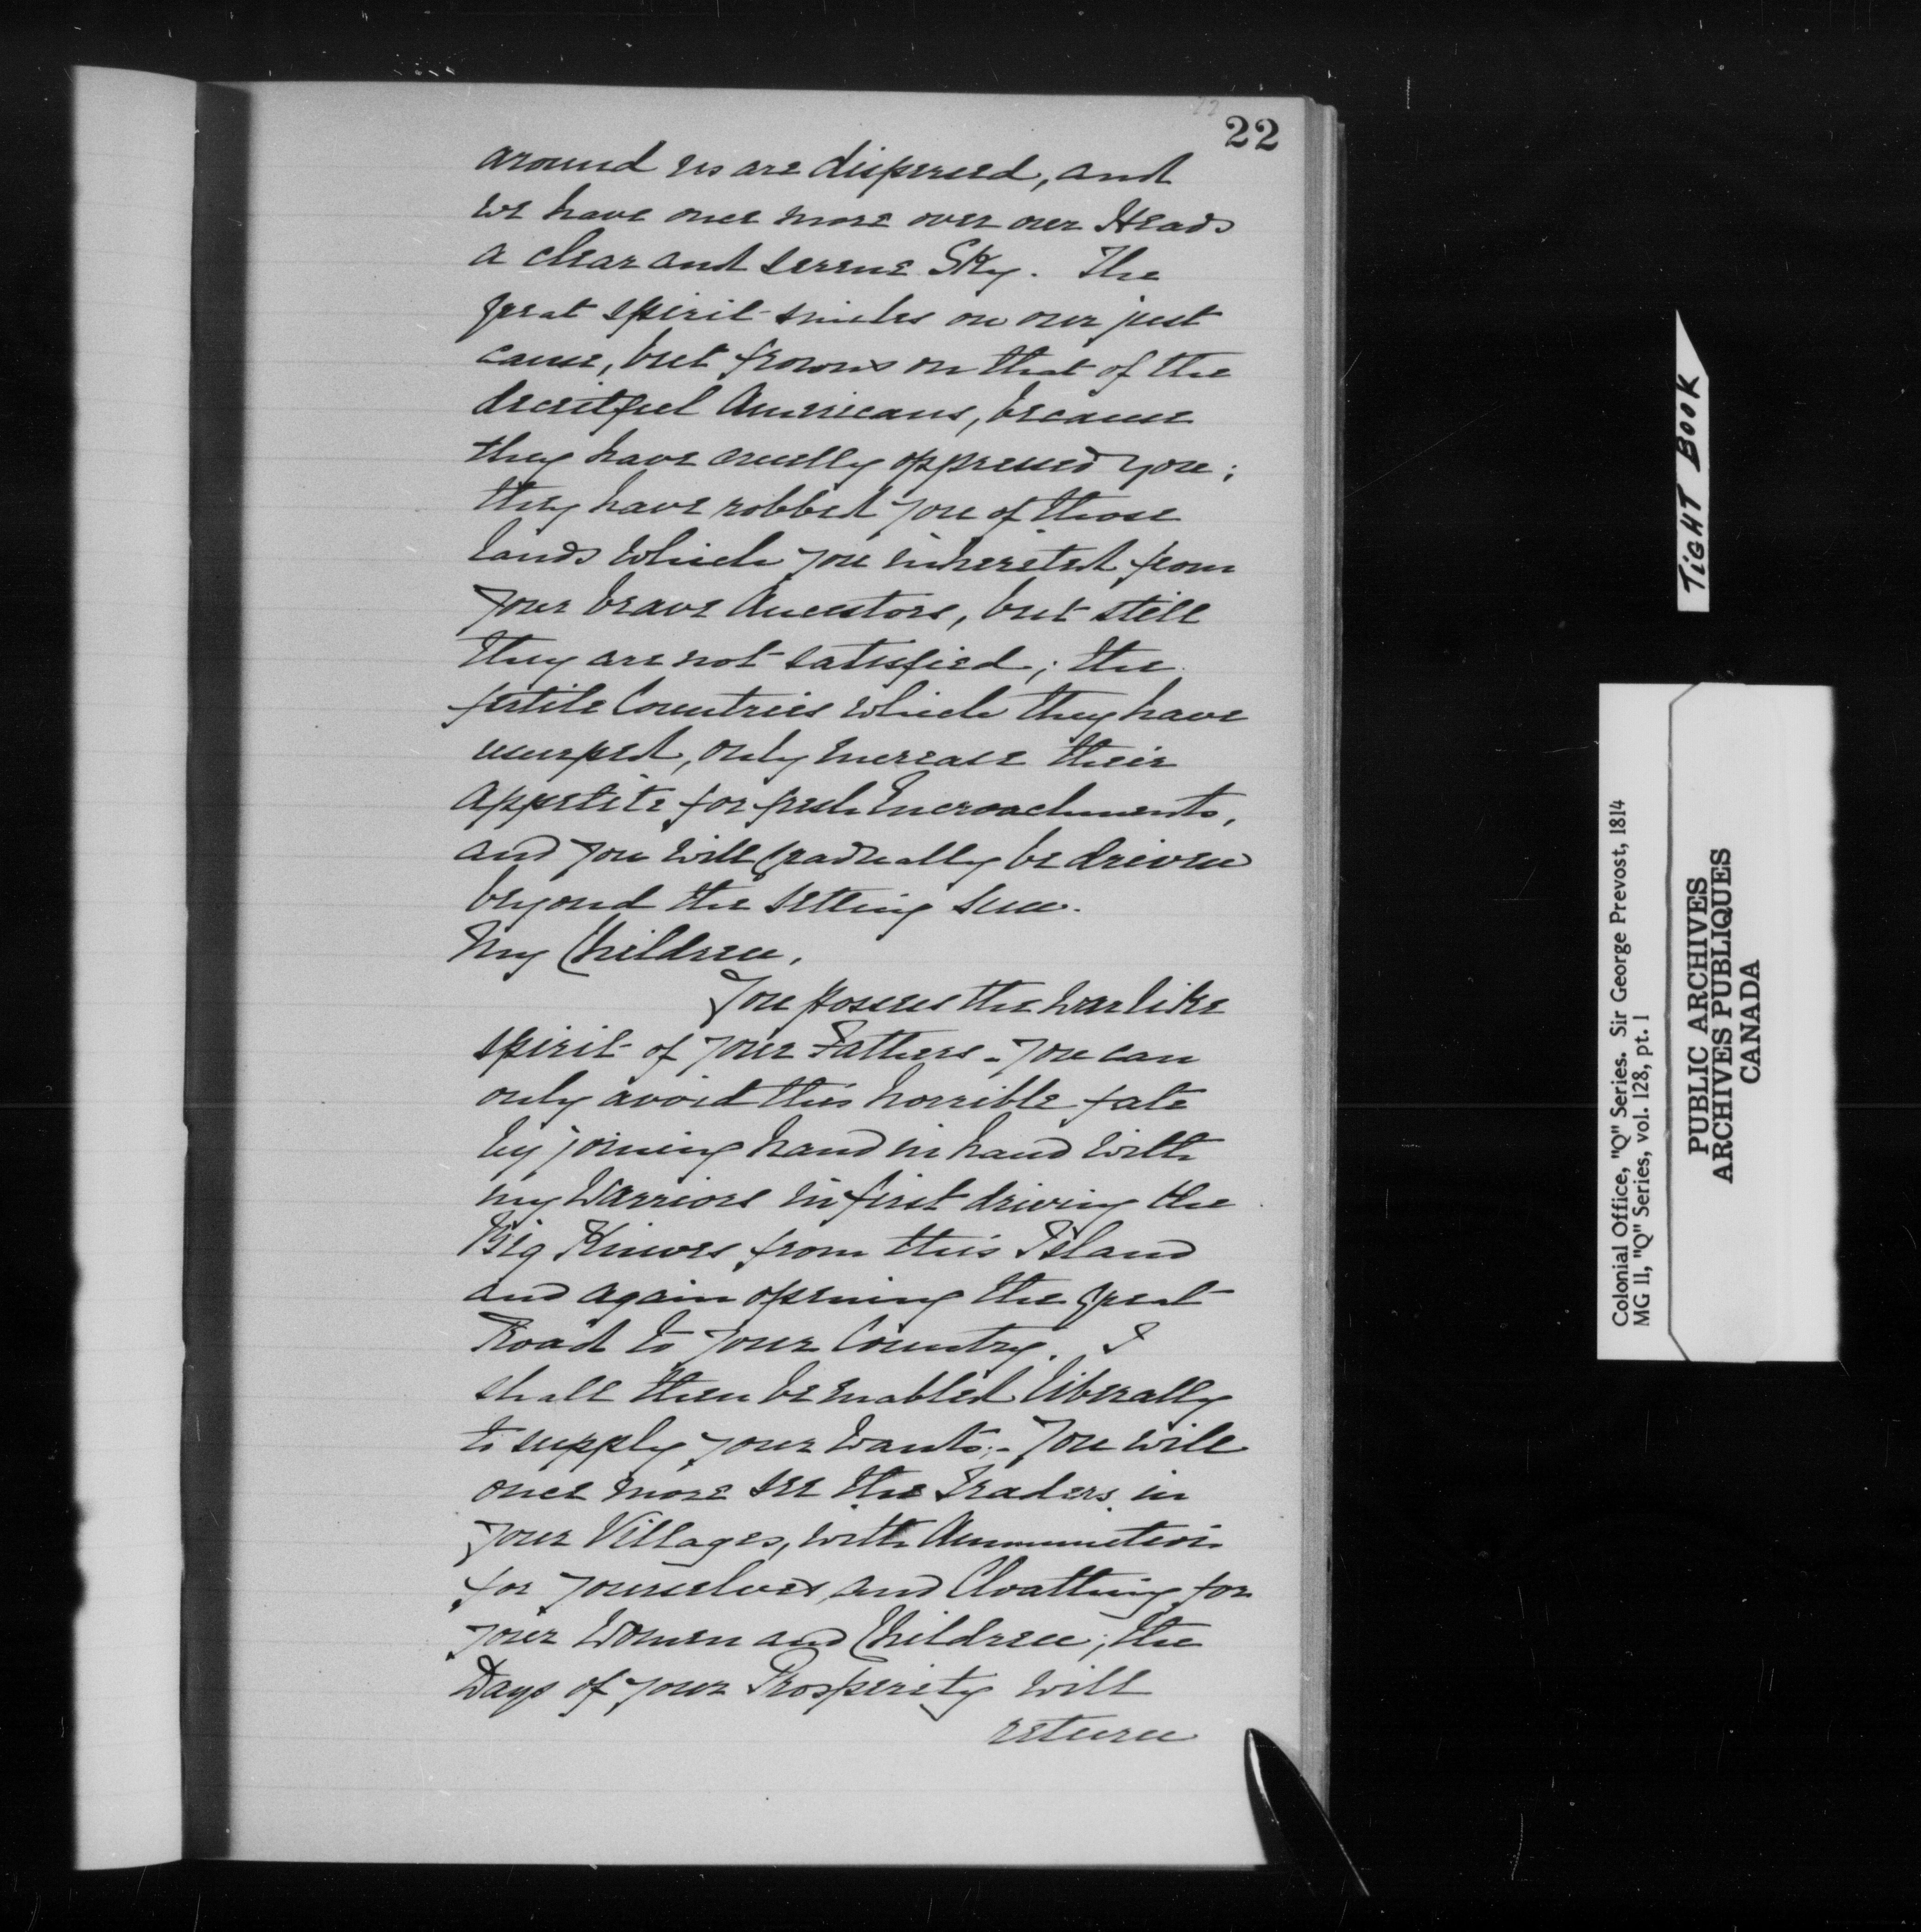 22
around us are dispersed, and
we have once more over our Heads
a clear and serene Sky. The
great spirit smiles on our just
cause, but frowns on that of the
deceitful Americans, because
they have cruelly oppressed you;
they have robbed you of those
lands which you inherited from
your brave Ancestors, but still
they are not satisfied; the
fertile Countries which they have
usurped, only increase their
appetite for fresh Encroachments,
and you will gradually be driven
beyond the setting sun.
My Children,
You possess the warlike
spirit of your Fathers - you can
only avoid this horrible fate
by joining hand in hand with
my Warriors in first driving the
Big Knives from this Island
and again opening the great
Road to your Country. I
shall then be enabled liberally
to supply your wants; - You will
once more see the Traders in
your Villages, with Ammunition
for yourselves, and Cloathing for
your Women and Children; the
Days of your Prosperity will
return
TIGHT BOOK
Colonial Office, "Q" Series. Sir George Prevost, 1814
MG 11, "Q" Series, vol. 128, pt. 1
PUBLIC ARCHIVES
ARCHIVES PUBLIQUES
CANADA